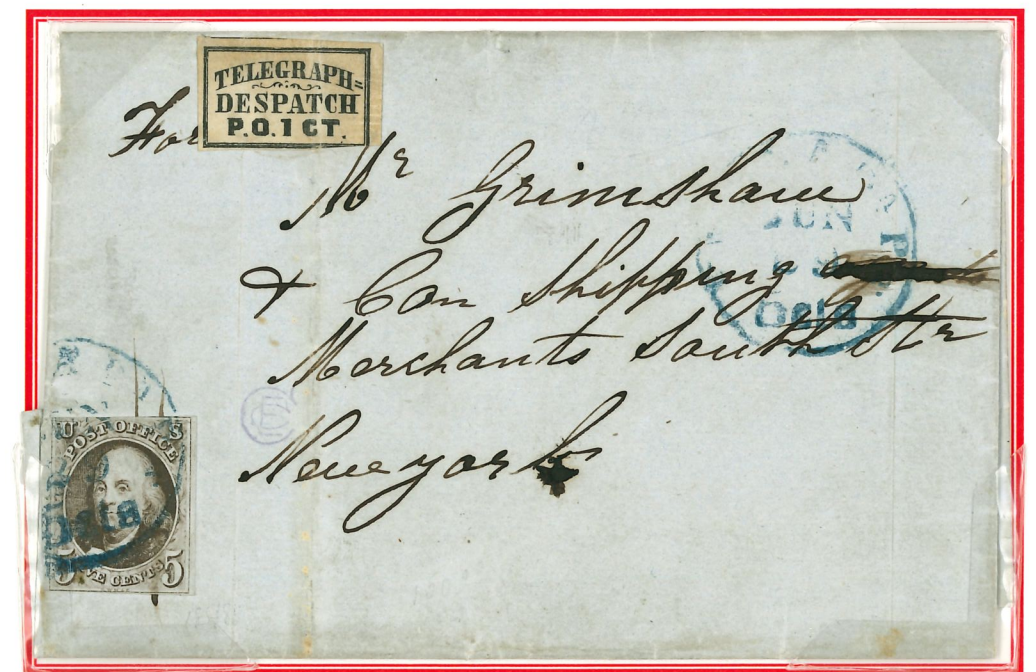 TELEGRAPH=
DESPATCH
P.O. 1 CT.
For
Mr Grimshaw
& Con Shipping
Merchants South Str
New york
JUN
U S
POST OFFICE
FIVE CENTS
5 5